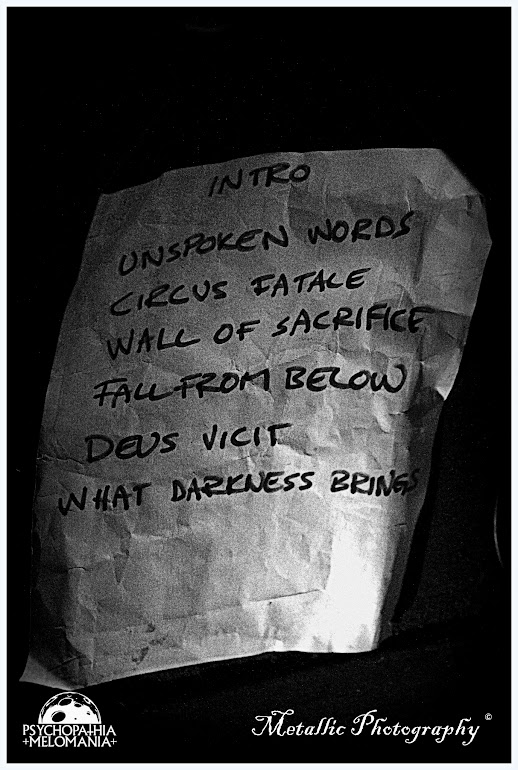 INTRO
UNSPOKEN WORDS
CIRCUS FATALE
WALL OF SACRIFICE
FALL FROM BELOW
DEUS VICIT
WHAT DARKNESS BRINGS
PSYCHOPATHIA
+MELOMANIA+
Metallic Photography ©